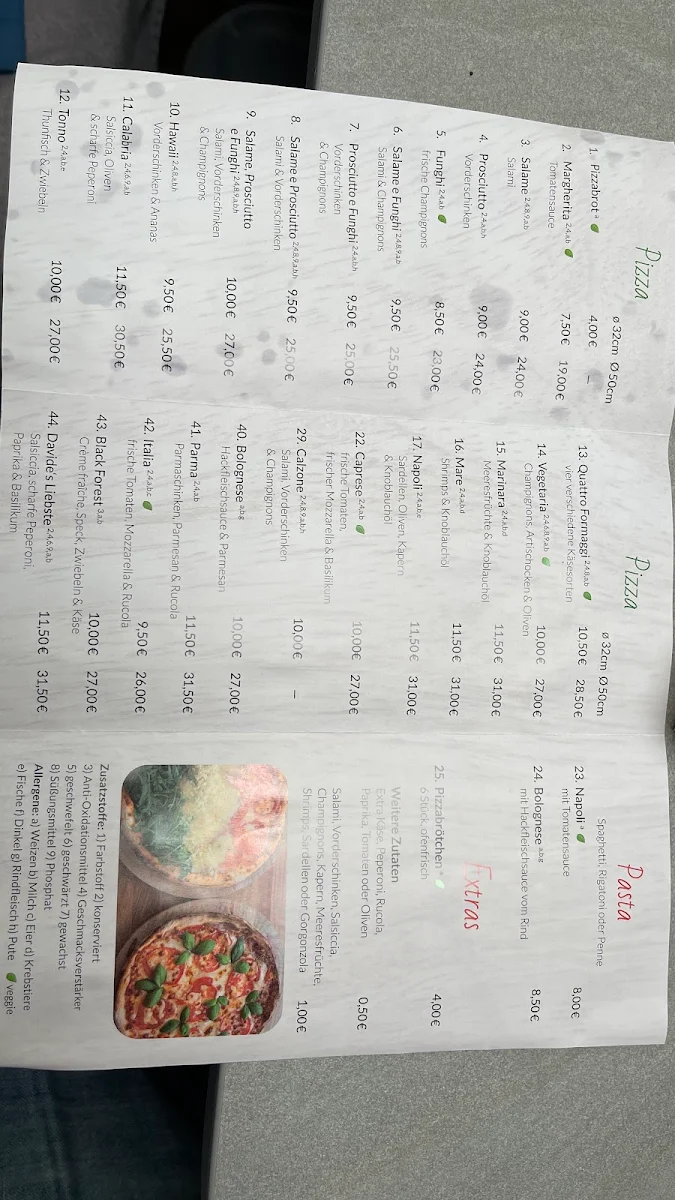 Pizza
ø 32cm Ø 50cm
1. Pizzabrot a 4,00€ –
2. Margherita 2,4,a,b 7,50€ 19,00€
Tomatensauce
3. Salame 2,4,8,9,a,b 9,00€ 24,00€
Salami
4. Prosciutto 2,4,a,b,h 9,00€ 24,00€
Vorderschinken
5. Funghi 2,4,a,b 8,50€ 23,00€
frische Champignons
6. Salame e Funghi 2,4,8,9,a,b 9,50€ 25,50€
Salami & Champignons
7. Prosciutto e Funghi 2,4,a,b,h 9,50€ 25,00€
Vorderschinken
& Champignons
8. Salame e Prosciutto 2,4,8,9,a,b,h 9,50€ 25,00€
Salami & Vorderschinken
9. Salame, Prosciutto
e Funghi 2,4,8,9,a,b,h 10,00€ 27,00€
Salami, Vorderschinken
& Champignons
10. Hawaii 2,4,8,a,b,h 9,50€ 25,50€
Vorderschinken & Ananas
11. Calabria 2,4,6,9,a,b 11,50€ 30,50€
Salsiccia, Oliven
& scharfe Peperoni
12. Tonno 2,4,a,b,e 10,00€ 27,00€
Thunfisch & Zwiebeln
Pizza
ø 32cm Ø 50cm
13. Quattro Formaggi 2,4,8,a,b 10,50€ 28,50€
vier verschiedene Käsesorten
14. Vegetaria 2,4,6,8,9,a,b 10,00€ 27,00€
Champignons, Artischocken & Oliven
15. Marinara 2,4,a,b,d 11,50€ 31,00€
Meeresfrüchte & Knoblauchöl
16. Mare 2,4,a,b,d 11,50€ 31,00€
Shrimps & Knoblauchöl
17. Napoli 2,4,a,b,e 11,50€ 31,00€
Sardellen, Oliven, Kapern
& Knoblauchöl
22. Caprese 2,4,a,b 10,00€ 27,00€
frische Tomaten,
frischer Mozzarella & Basilikum
29. Calzone 2,4,8,9,a,b,h 10,00€ –
Salami, Vorderschinken
& Champignons
40. Bolognese a,b,g 10,00€ 27,00€
Hackfleischsauce & Parmesan
41. Parma 2,4,a,b 11,50€ 31,50€
Parmaschinken, Parmesan & Rucola
42. Italia 2,4,a,b,c 9,50€ 26,00€
frische Tomaten, Mozzarella & Rucola
43. Black Forest 3,4,b 10,00€ 27,00€
Crèmefraîche, Speck, Zwiebeln & Käse
44. Davide's Liebste 2,4,6,9,a,b 11,50€ 31,50€
Salsiccia, scharfe Peperoni,
Paprika & Basilikum
Pasta
Spaghetti, Rigatoni oder Penne
23. Napoli a 8,00€
mit Tomatensauce
24. Bolognese a,b,g 8,50€
mit Hackfleischsauce vom Rind
Extras
25. Pizzabrötchen a 4,00€
6 Stück, ofenfrisch
Weitere Zutaten
Extra Käse, Peperoni, Rucola,
Paprika, Tomaten oder Oliven 0,50€
Salami, Vorderschinken, Salsiccia,
Champignons, Kapern, Meeresfrüchte,
Shrimps, Sardellen oder Gorgonzola 1,00€
Zusatzstoffe: 1) Farbstoff 2) konserviert
3) Anti-Oxidationsmittel 4) Geschmacksverstärker
5) geschwefelt 6) geschwärzt 7) gewachst
8) Süßungsmittel 9) Phosphat
Allergene: a) Weizen b) Milch c) Eier d) Krebstiere
e) Fische f) Dinkel g) Rindfleisch h) Pute veggie